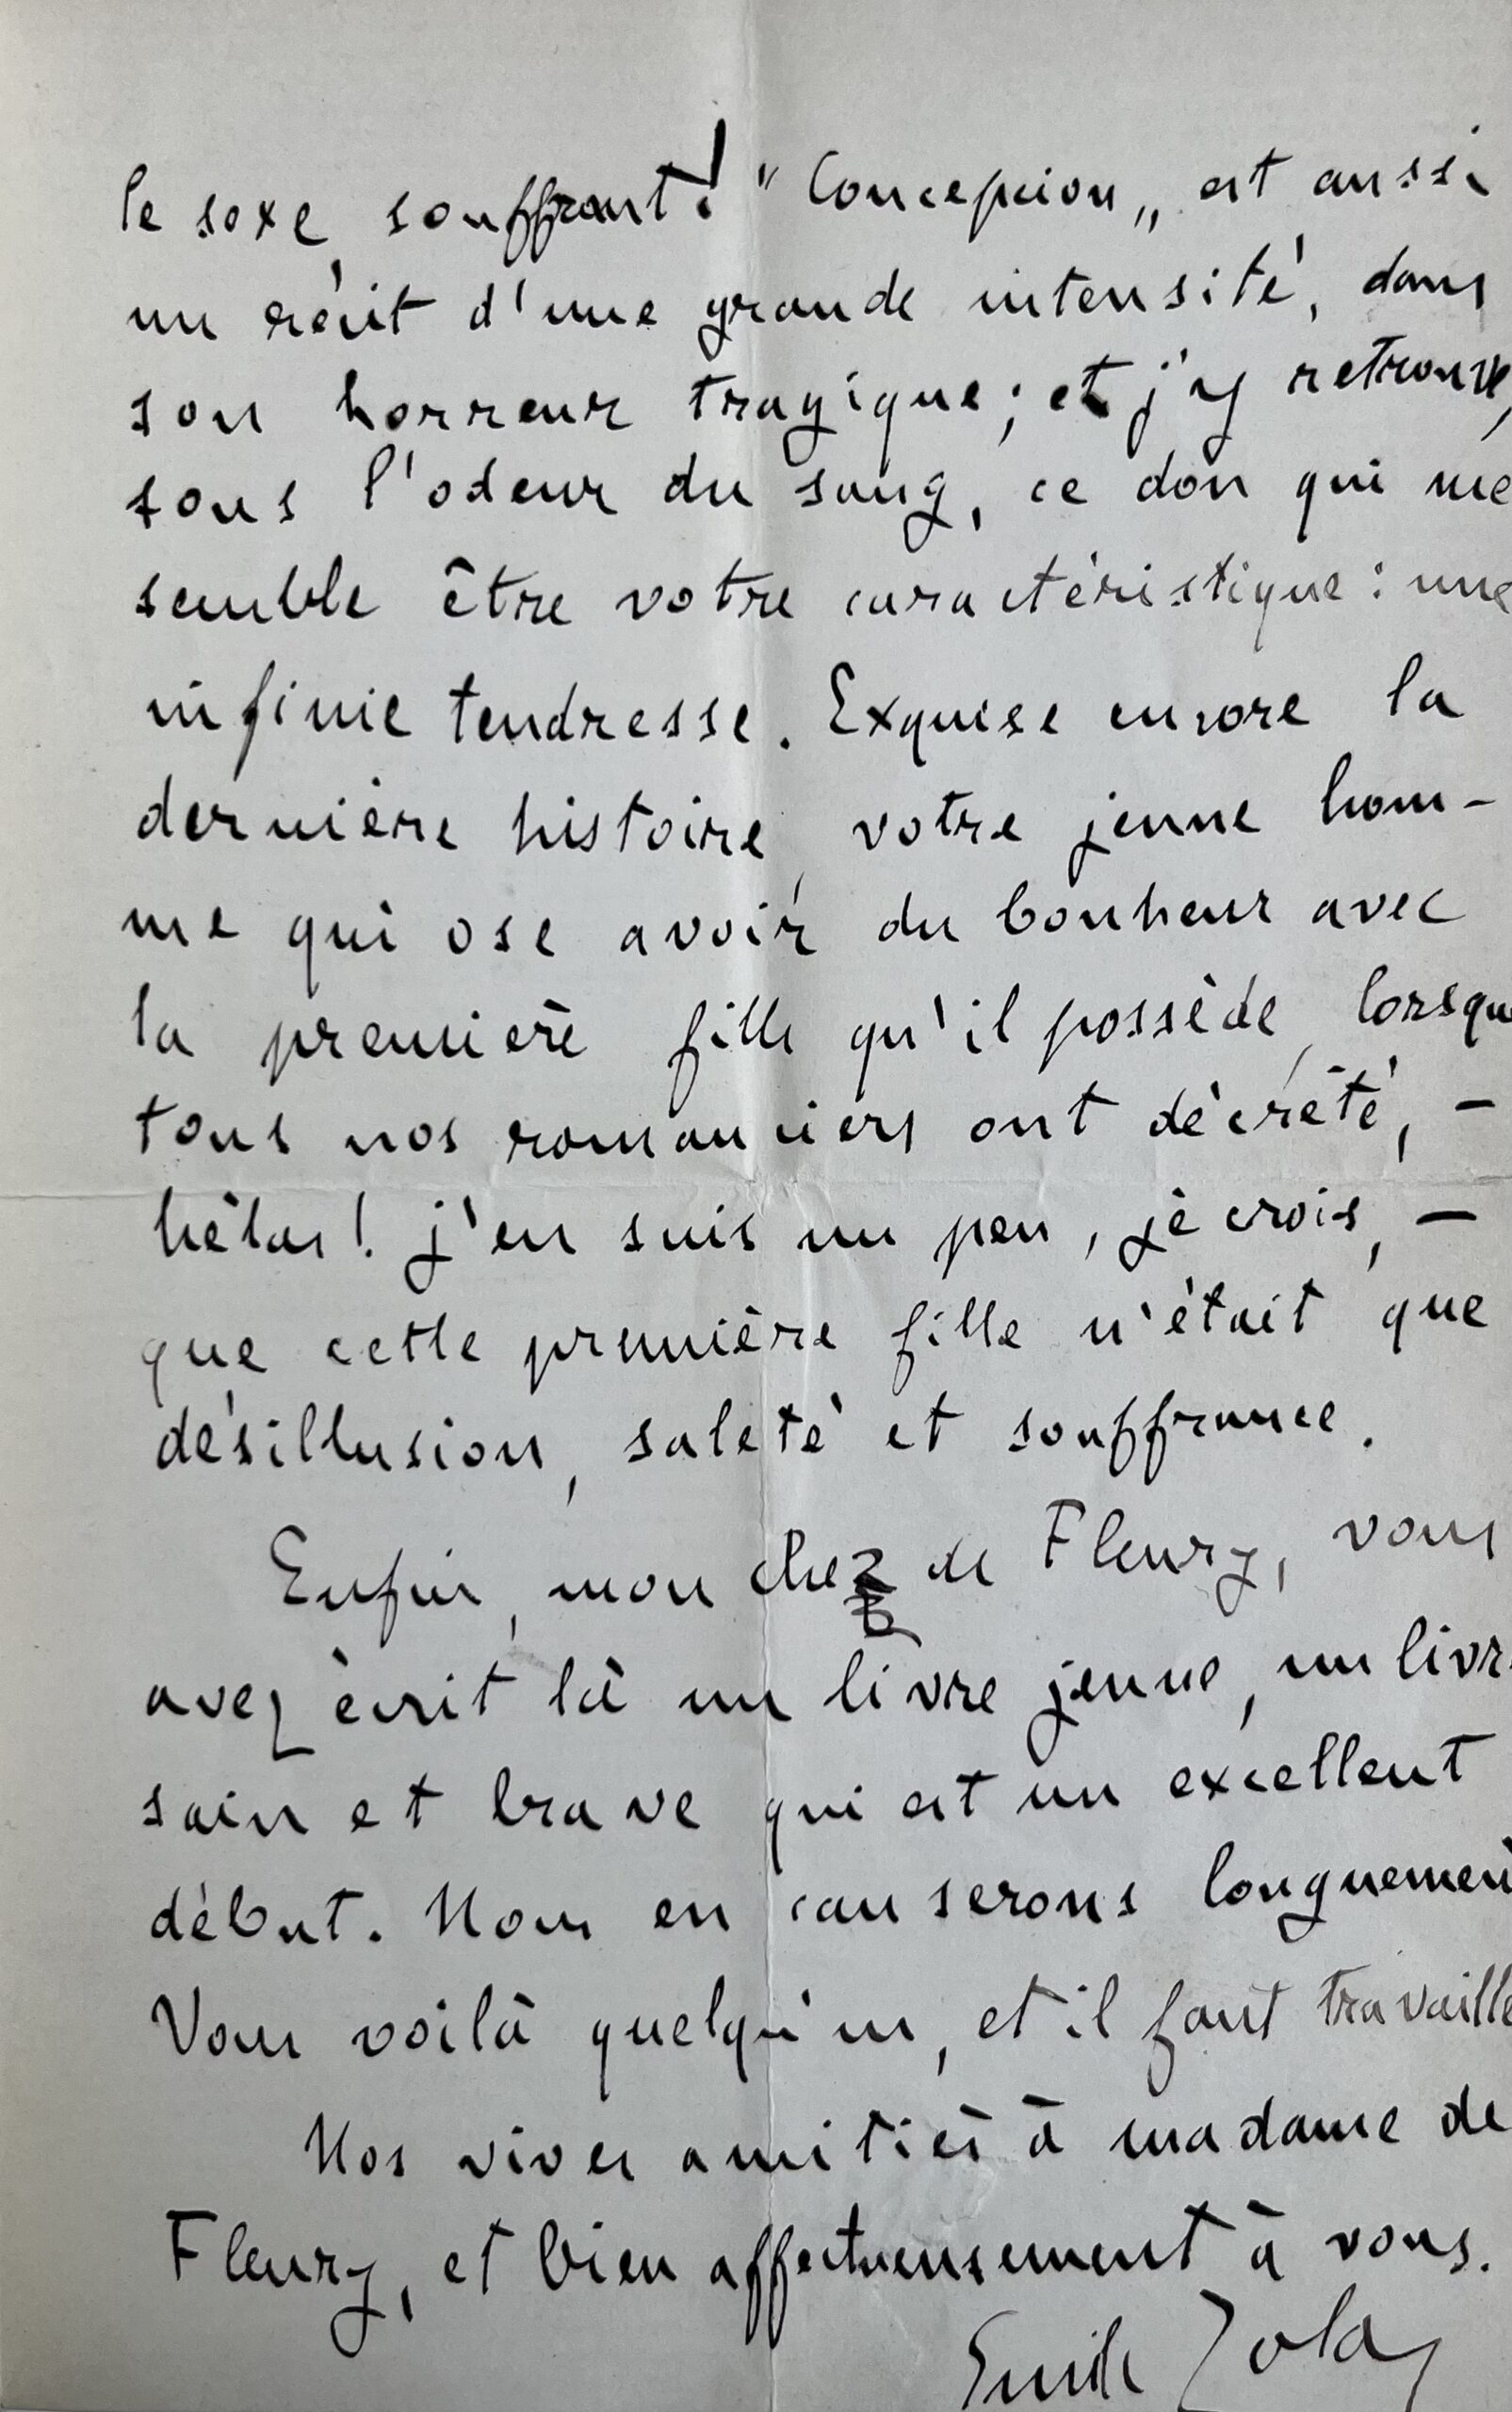 le sexe souffrant! "Concepcion„ est aussi
un récit d'une grande intensité, dans
son horreur tragique; et j'y retrouve,
sous l'odeur du sang, ce don qui me
semble être votre caractéristique: une
infinie tendresse. Exquise encore la
dernière histoire, votre jeune hom-
me qui ose avoir du bonheur avec
la première fille qu'il possède, lorsqu
tous nos romanciers ont décrété, —
hélas! j'en suis un peu, je crois, —
que cette première fille n'était que
désillusion, saleté et souffrance.
Enfin, mon cher de Fleury, vous
avez écrit là un livre jeune, un livr
sain et brave qui est un excellent
début. Nous en causerons longuement
Vous voilà quelqu'un, et il faut travaille
Nos vives amitiés à madame de
Fleury, et bien affectueusement à vous.
Emile Zola